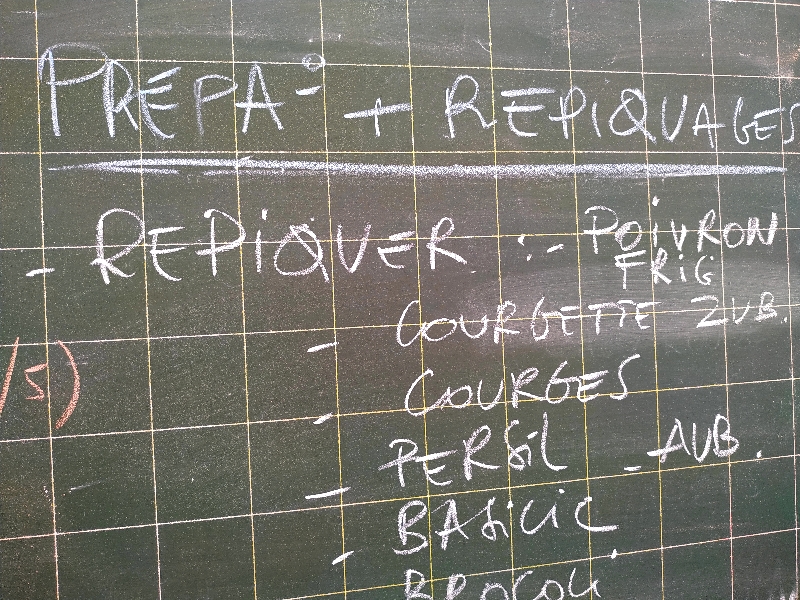 PREPA° + REPIQUAGES
- REPIQUER :- POIVRON
FRIG
- COURGETTE ZUB.
/5)
- COURGES
- PERSIL - AUB.
- BASILIC
- BROCOLI